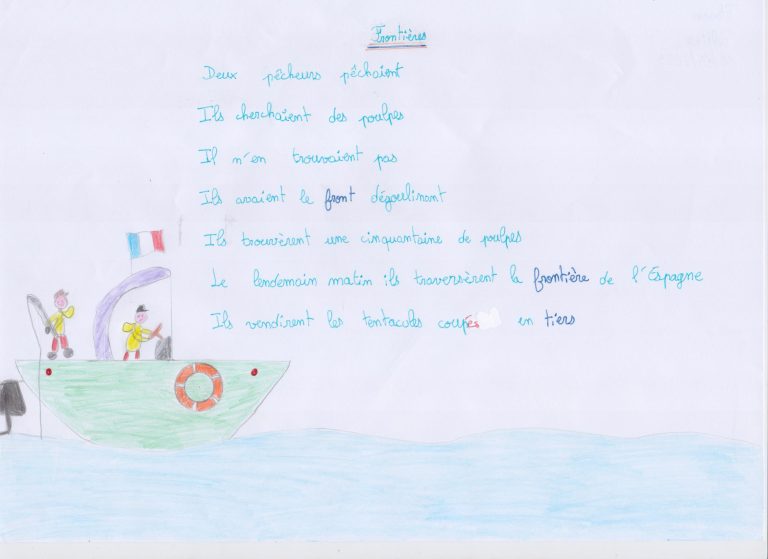 Frontières
Deux pêcheurs pêchaient
Ils cherchaient des poulpes
Il n'en trouvaient pas
Ils avaient le front dégoulinant
Ils trouvèrent une cinquantaine de poulpes
Le lendemain matin ils traversèrent la frontière de l'Espagne
Ils vendirent les tentacules coupés en tiers